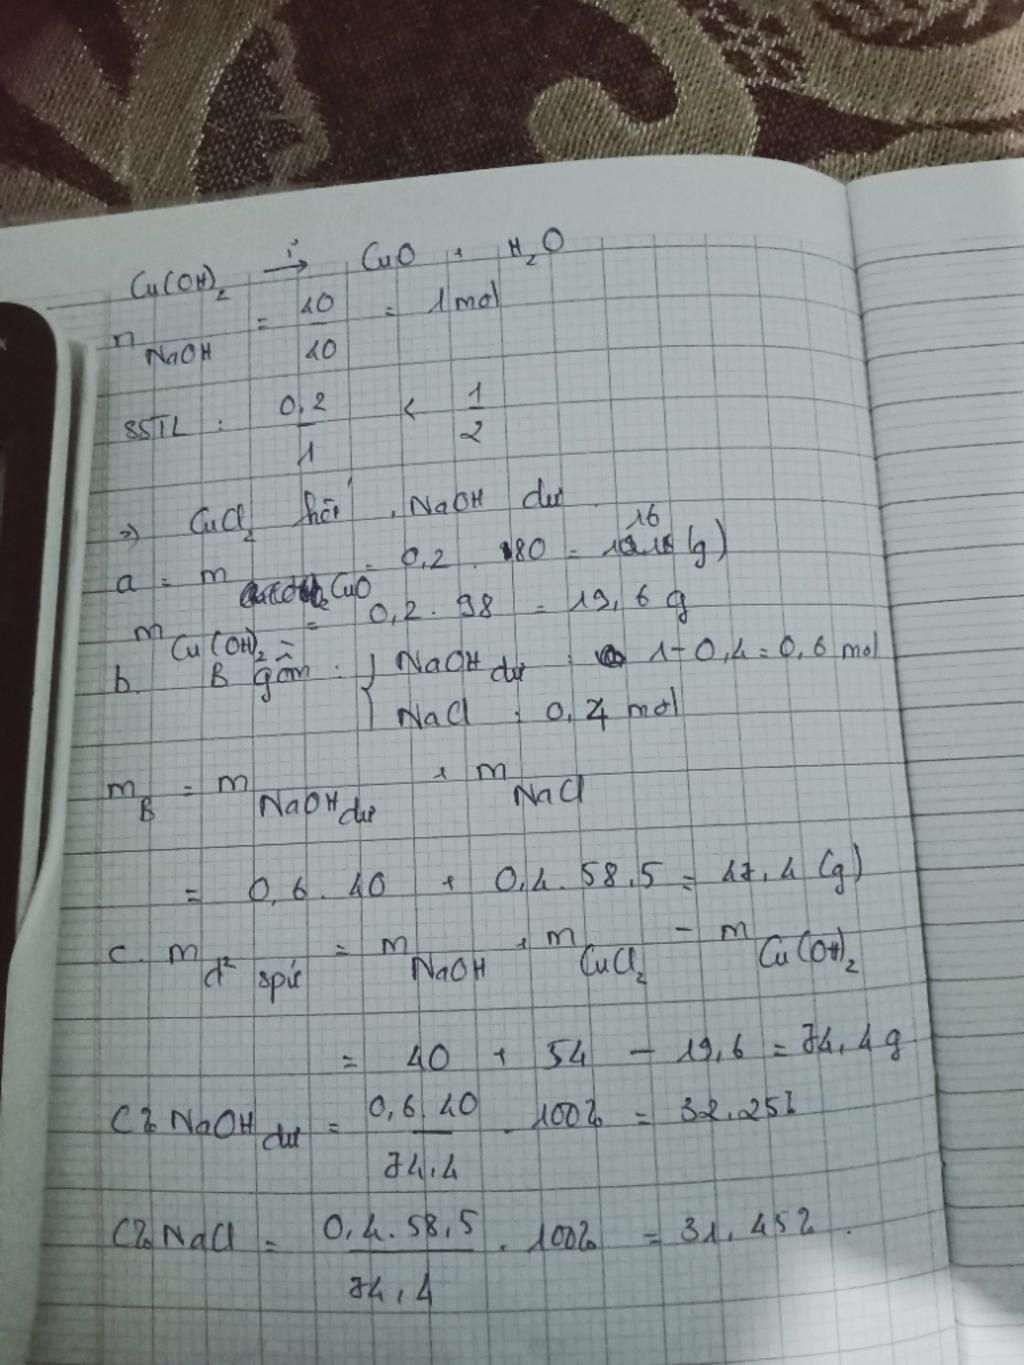 Cu(OH)₂ →t° CuO + H₂O
n NaOH = 40/40 = 1 mol
SSTL : 0,2/1 < 1/2
⇒ CuCl₂ hết, NaOH dư
a = m CuO = 0,2 . 80 = 16 (g)
m Cu(OH)₂ = 0,2 . 98 = 19,6 g
b. B gồm : { NaOH dư : 1 - 0,4 = 0,6 mol
NaCl : 0,4 mol
m B = m NaOH dư + m NaCl
= 0,6 . 40 + 0,4 . 58,5 = 47,4 (g)
c. m d² spứ = m NaOH + m CuCl₂ - m Cu(OH)₂
= 40 + 54 - 19,6 = 74,4 g
C% NaOH dư = 0,6.40/74,4 . 100% = 32,25%
C% NaCl = 0,4.58,5/74,4 . 100% = 31,45%.